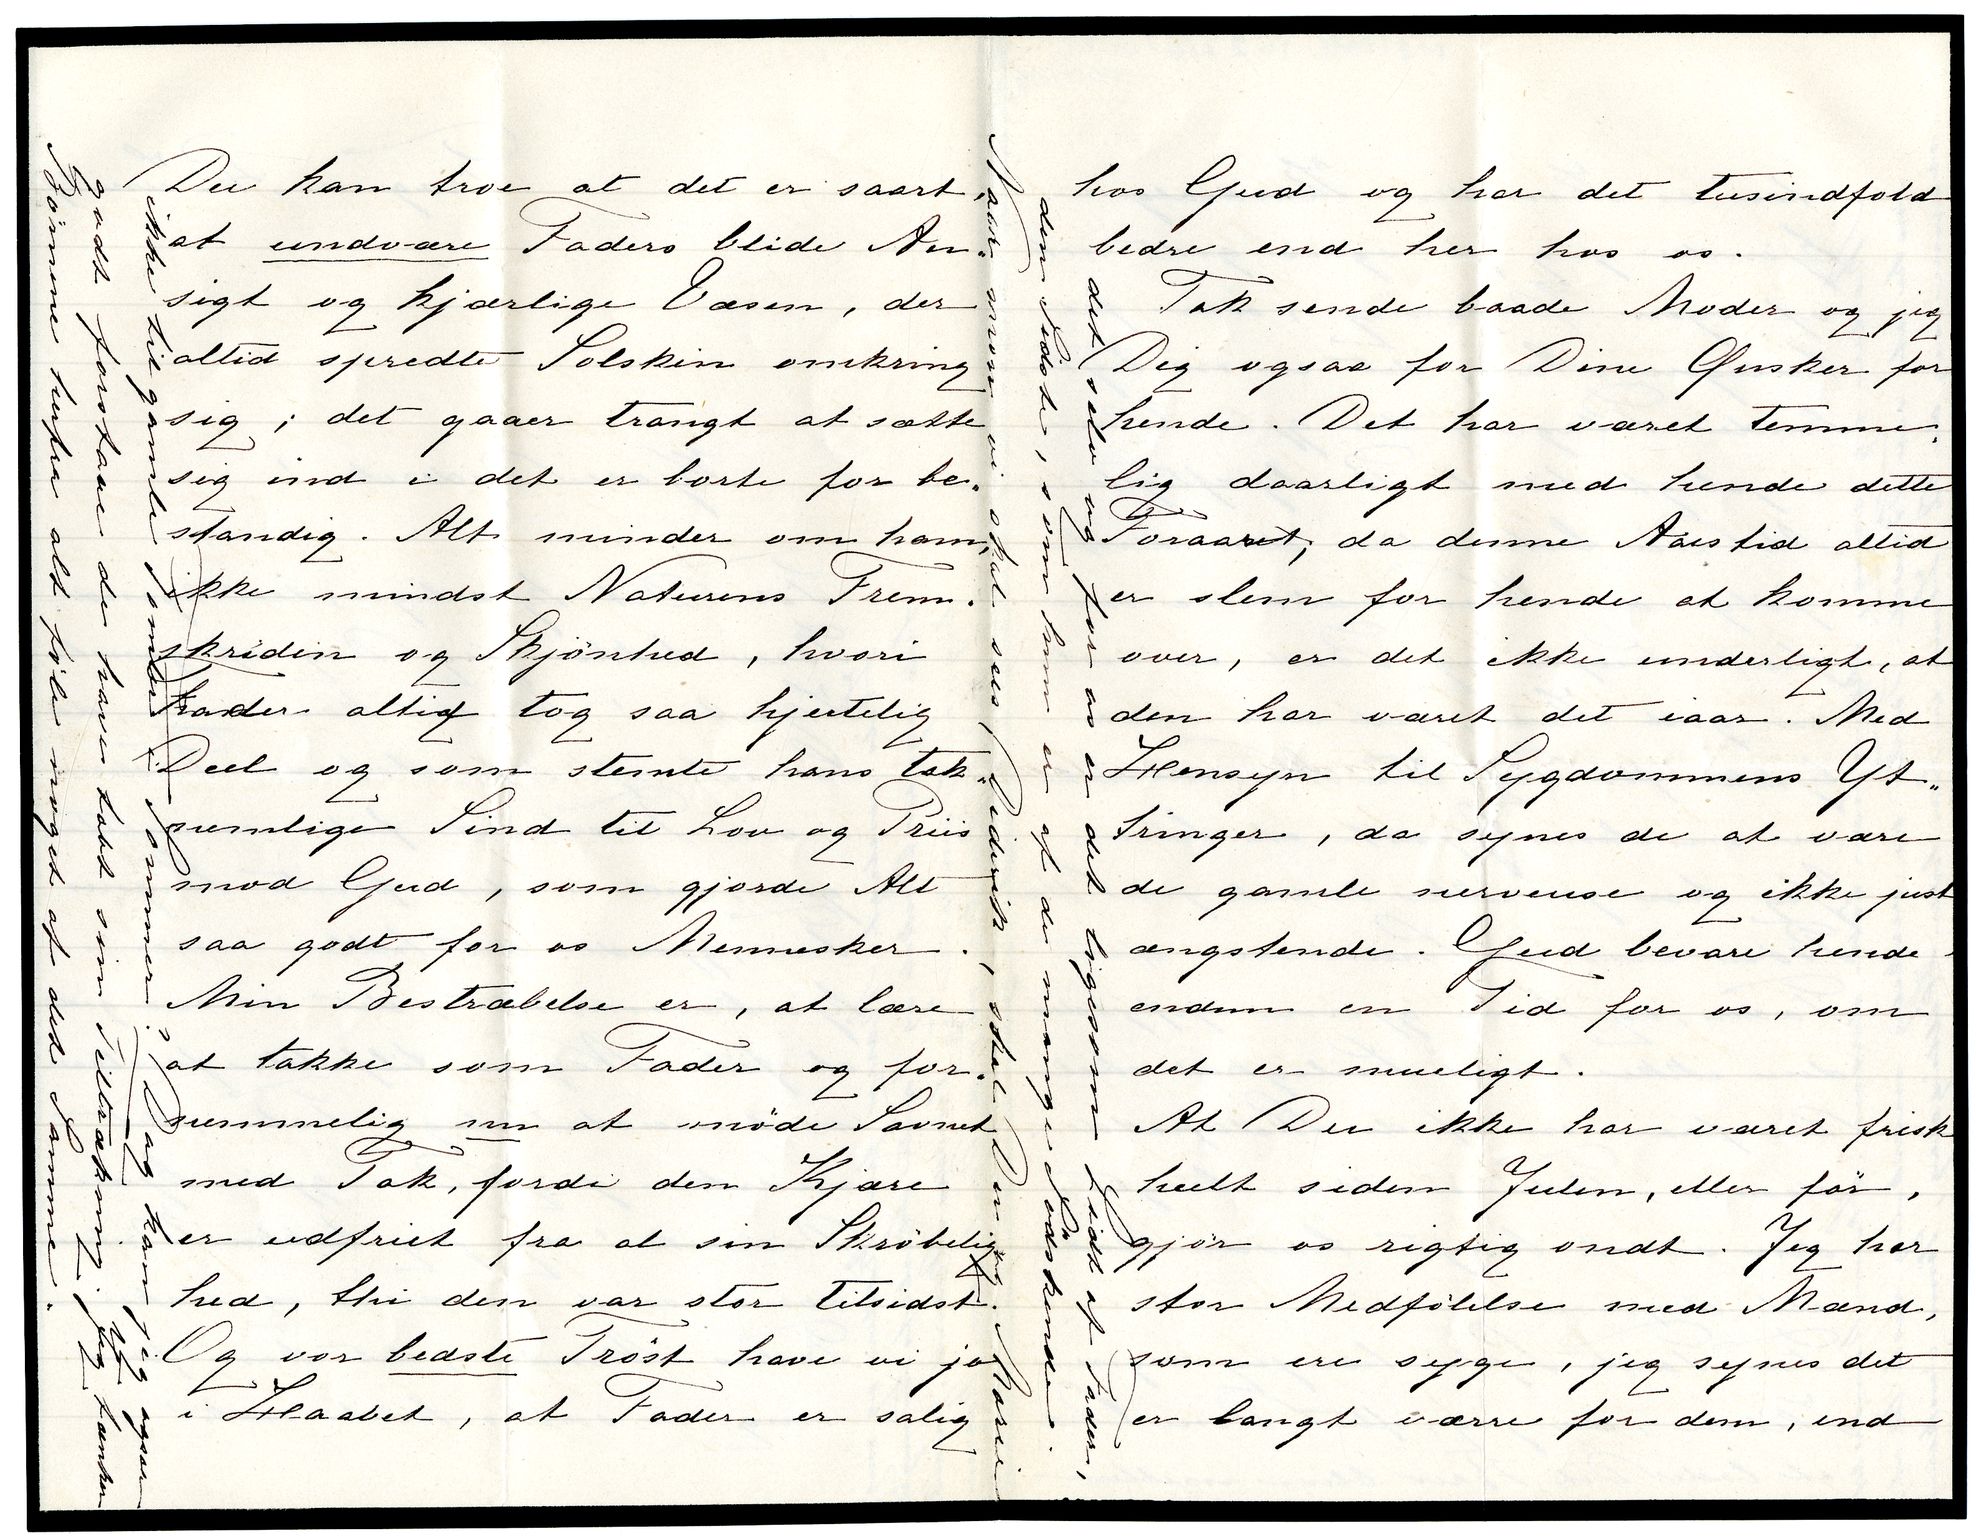 Du kan troe at det er saart,
at undvære Faders blide An-
sigt og kjærlige Væsen, der
altid spredte Solskin omkring
sig; det gaaer trangt at sætte
sig ind i det er borte for be-
standig. Alt minder om ham,
ikke mindst Naturens Frem-
skriden og Skjönhed, hvori
Fader altid tog saa hjertelig
Deel og som stemte hans tak-
nemlige Sind til Lov og Priis
mod Gud, som gjorde Alt
saa godt for os Mennesker.
Min Bestræbelse er, at lære
at takke som Fader og for-
nemmelig nu at möde Savnet
med Tak, fordi den Kjære
er udfriet fra al sin Skröbelig-
hed, thi den var stor tilsidst.
Og vor bedste Tröst have vi jo
i Haabet, at Fader er salig
hos Gud og har det tusindfold
bedre end her hos os.
Tak sende baade Moder og jeg
Dig ogsaa for Dine Ønsker for
hende. Det har været temme-
lig daarligt med hende dette
Foraaret, da denne Aarstid altid
er slem for hende at komme
over, er det ikke underligt, at
den har været det iaar. Med
Hensyn til Sygdommens Yt-
tringer, da synes de at være
de gamle nerveuse og ikke just
ængstende. Gud bevare hende
endnu en Tid for os, om
det er mueligt.
At Du ikke har været frisk
heelt siden Julen, eller för,
gjör os rigtig ondt. Jeg har
stor Medfölelse med Mænd,
som ere syge, jeg synes det
er langt værre for dem, end
det selv og for os er det ligesom Lidt af Fader,
den sidste, som han er af de mange Södskende.
Naar mon vi skal sees, Diderik, skal Du og Marie
ikke til gamle Jomber i Sommer? Saa kan jeg ogsaa
godt forstaae de have havt sin Tiltrækning. Jeg tænker
Börnene herfra alt föle noget af det Samme.